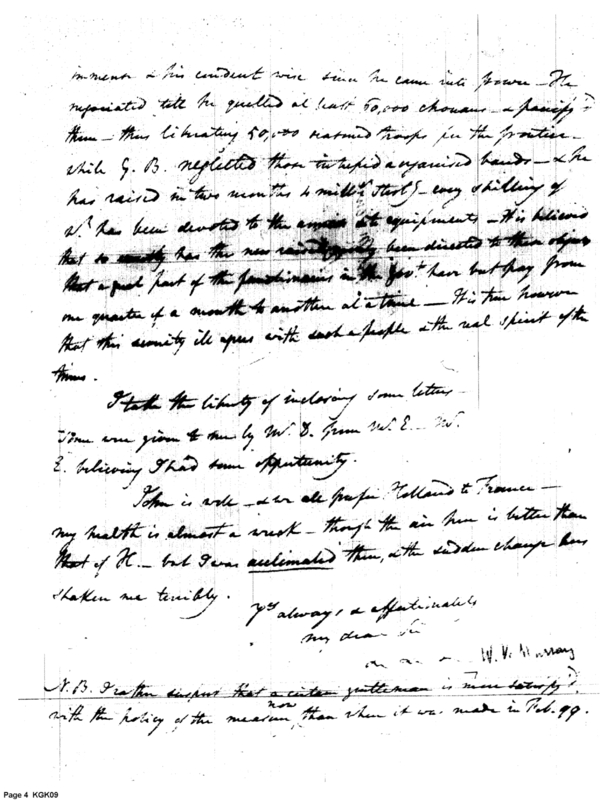 immense & his conduct wise since he came into power — He
negociated till he quelled at least 60,000 chouans — & pacify'd
them — thus liberating 50,000 seasoned troops for the frontier —
while G. B. neglected those intrepid & organised bands — & he
has raised in two months 4 mill.s Sterl.g — every shilling of
w.h has been devoted to the armies & its equipments — It is believed
that so exactly has the new been directed to these objects
that a great part of the functionaries in the Gov.t have but pay from
one quarter of a month to another at a time — It is true however
that this security ill agrees with such a people & the real spirit of the
times.
I take the liberty of inclosing some letters —
some were given to me by M. D. from W. E. — W.
E. believing I had some oppertunity.
John is well — & we all prefer Holland to France —
my health is almost a wreck — though the air here is better than
that of H. — but I was acclimated there, & the sudden change has
shaken me terribly.
Y.rs always & affectionately
my dear Sir
W. V. Murray
N.B. I rather suspect that a certain gentleman is more satisfy'd
with the policy of the measure now, than when it was made in Feb. 99.
Page 4 KGK09